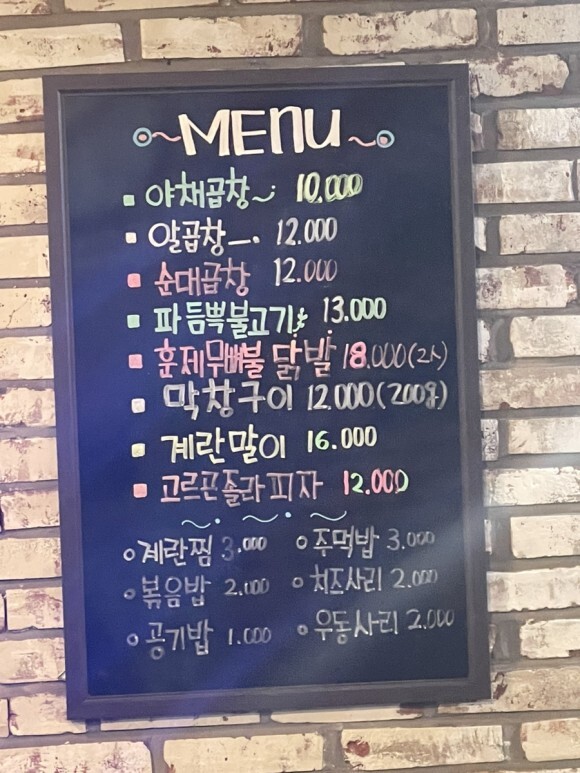 MENU
야채곱창~ 10.000
알곱창 12.000
순대곱창 12.000
파듬뿍불고기 13.000
훈제무뼈불닭발 18.000(2人)
막창구이 12.000(200g)
계란말이 16.000
고르곤졸라피자 12.000
계란찜 3.000 주먹밥 3.000
볶음밥 2.000 치즈사리 2.000
공기밥 1.000 우동사리 2.000